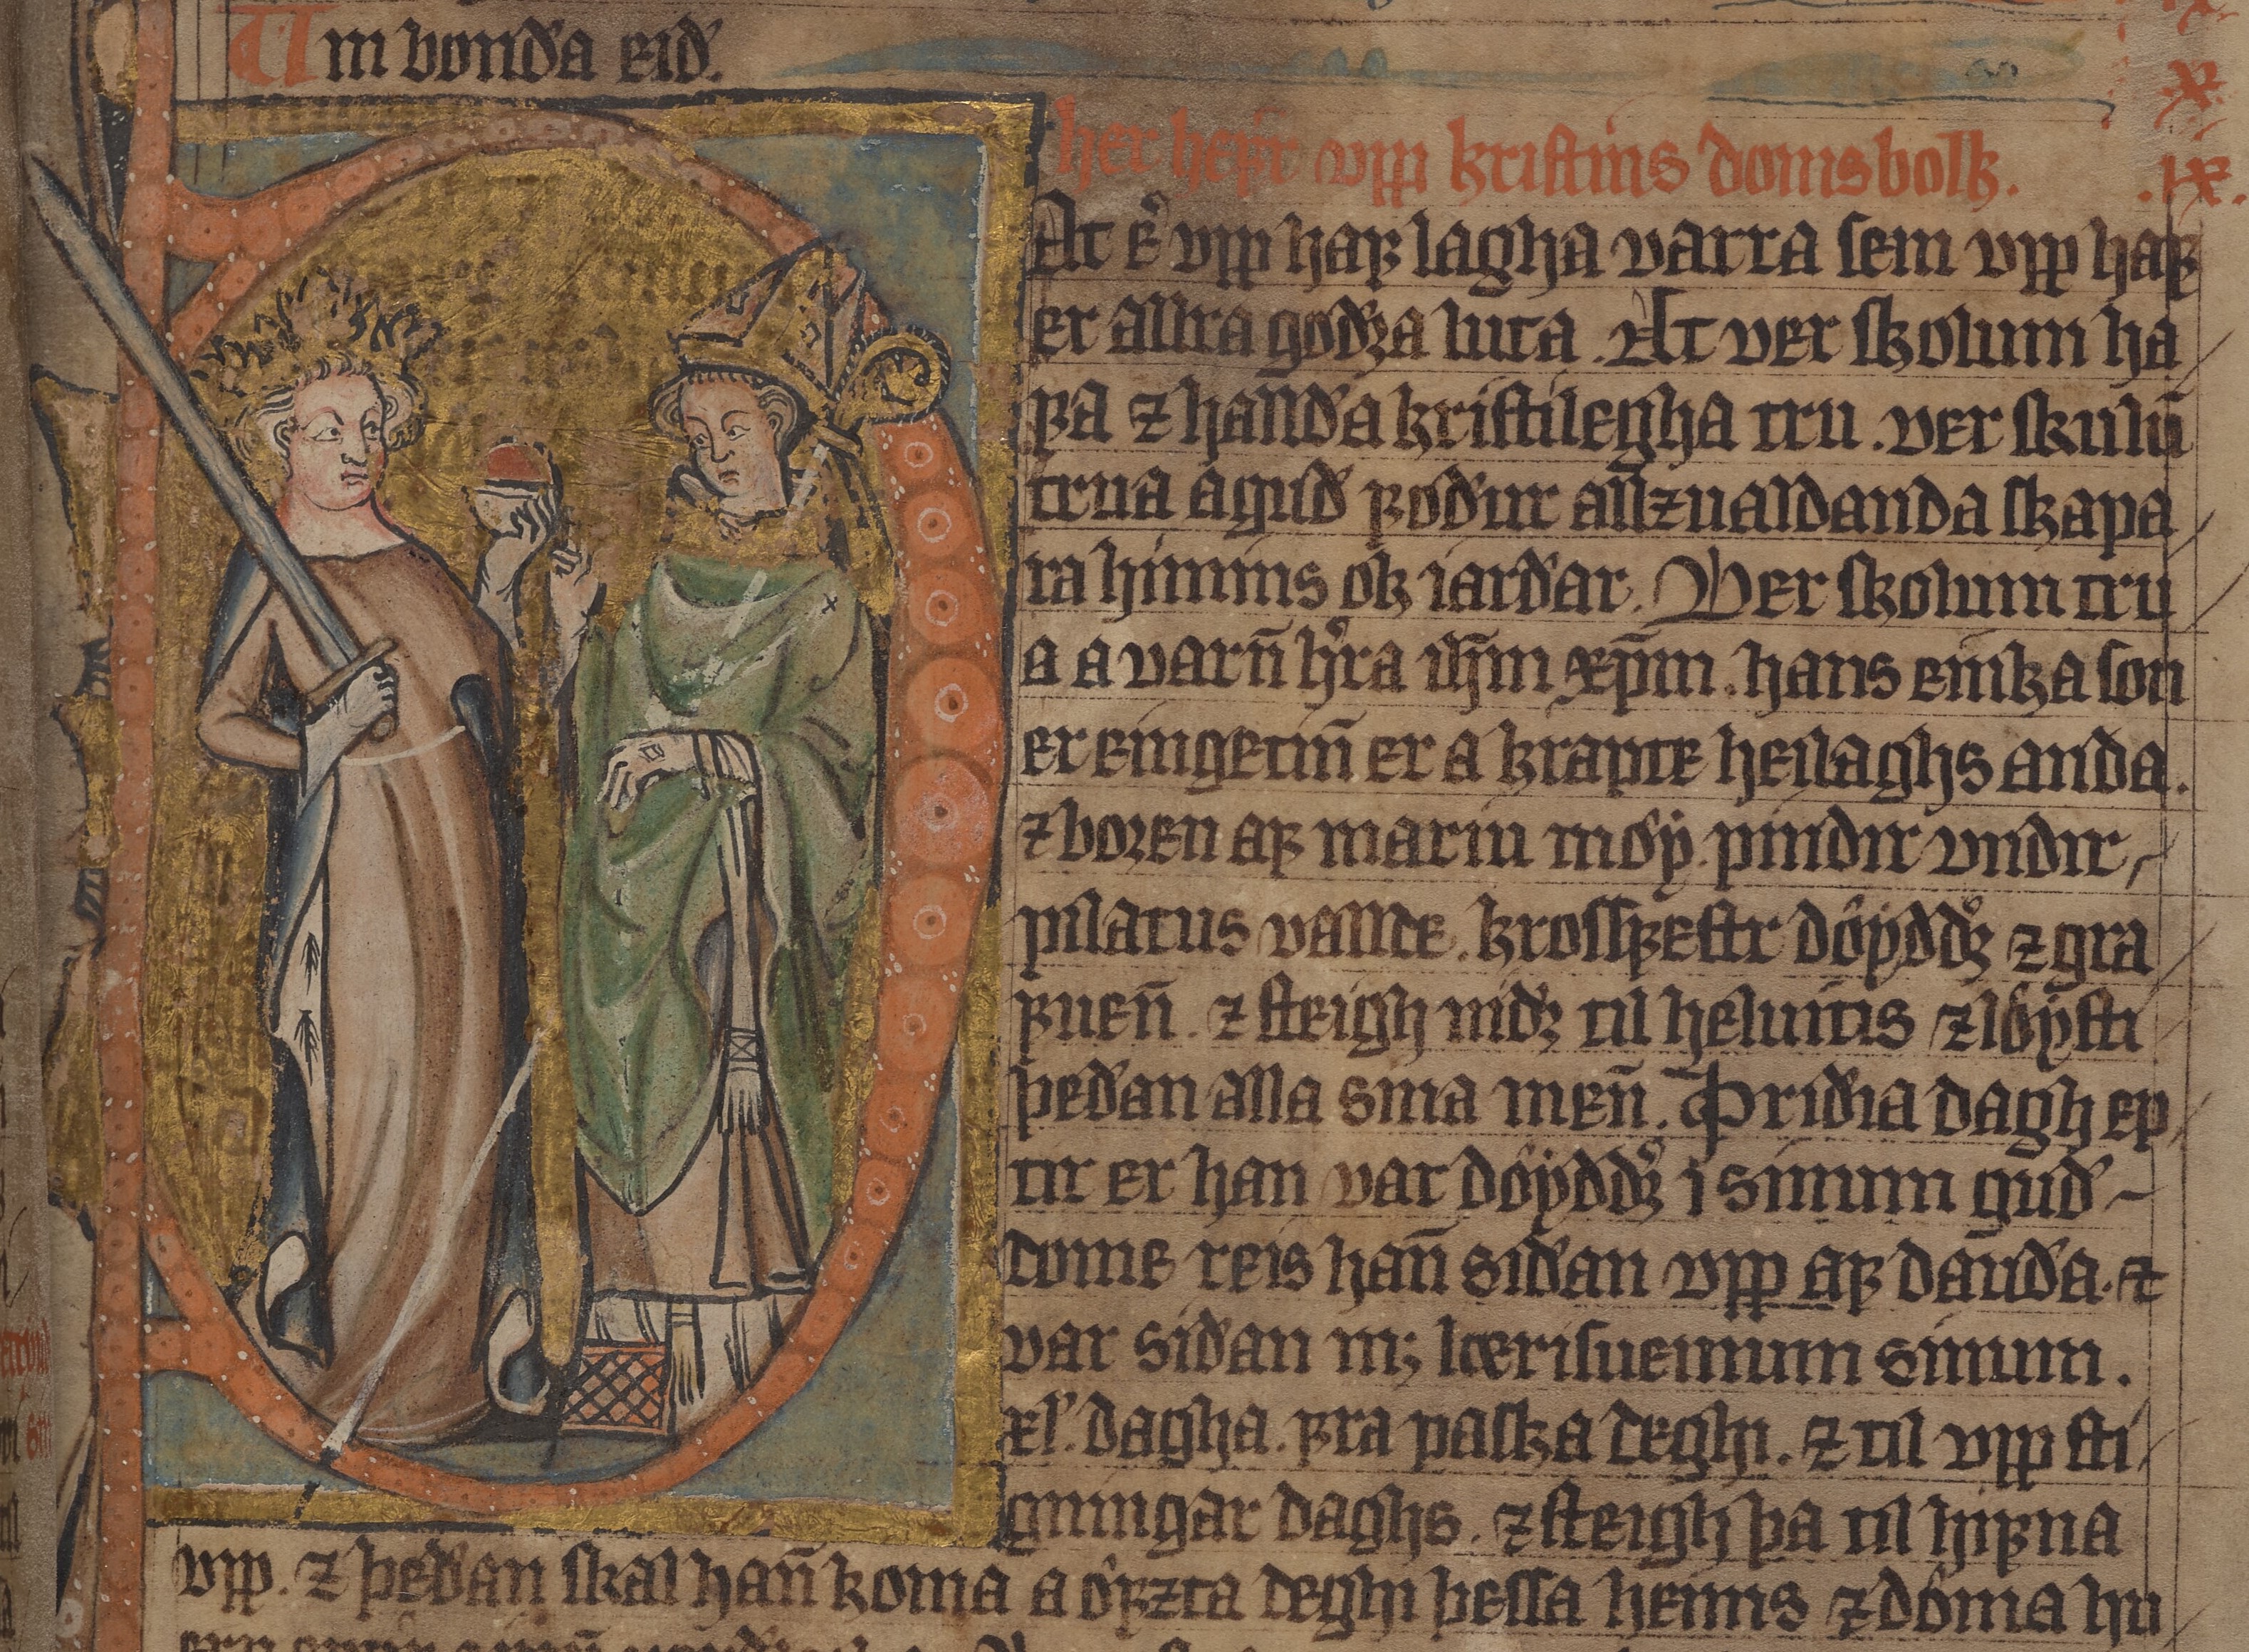 Um bonda eið.
her hefr upp kristins domsbolk.
.ix.
At er upp haf lagha varra sem upp haf
er allra goðra luta. At ver skolum ha
fa ⁊ hallda kristilegha tru. ver skulū
trua a guð foður allzualdanda skapa
ra himins ok iarðar. Ver skolum tru
a a varn̄ hͬra ihm̄ xpm̄. hans einka son
er eingetin̄ er a krapte heilaghs anda.
⁊ boren af mariu møy. pindir undir
pilatus vallde. krossfestr døyddr ⁊ gra
fuen̄. ⁊ steigh niðr til heluitis ⁊ løysti
þeðan alla sina men̄. Þriðia dagh ep
tir er han var døyddr i sinum guð-
dome reis han̄ siðan upp af dauða. ⁊
var siðan mꝫ lærisuemum sinum.
xl. dagha. fra paska deghi. ⁊ til upp sti
gningar daghs. ⁊ steigh þa til himna
upp. ⁊ þeðan skal han̄ koma a øfzta deghi þessa heims ⁊ døma hu